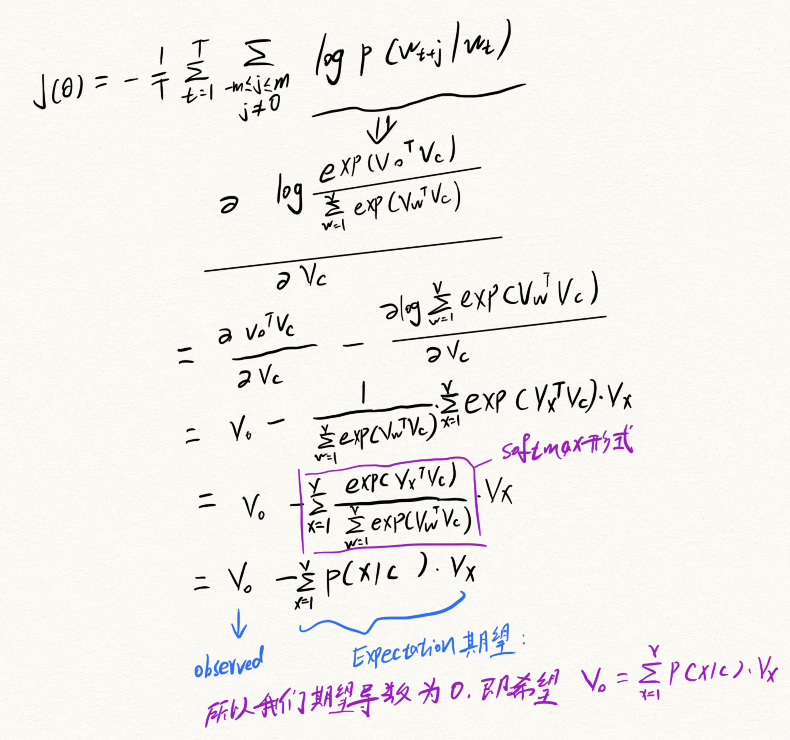 J(θ) = - 1/T Σ_{t=1}^{T} Σ_{-m≤j≤m, j≠0} log p(w_{t+j}|w_t)
⇓
∂ log exp(V_o^T V_c) / Σ_{w=1}^{V} exp(V_w^T V_c)
∂V_c
= ∂V_o^T V_c / ∂V_c - ∂log Σ_{w=1}^{V} exp(V_w^T V_c) / ∂V_c
= V_o - 1 / Σ_{w=1}^{V} exp(V_w^T V_c) · Σ_{x=1}^{V} exp(V_x^T V_c)·V_x
softmax形式
= V_o - Σ_{x=1}^{V} exp(V_x^T V_c) / Σ_{w=1}^{V} exp(V_w^T V_c) ·V_x
= V_o - Σ_{x=1}^{V} p(x|c )·V_x
observed
Expectation期望:
所以我们期望导数为0.即希望 V_o = Σ_{x=1}^{V} p(x|c)·V_x